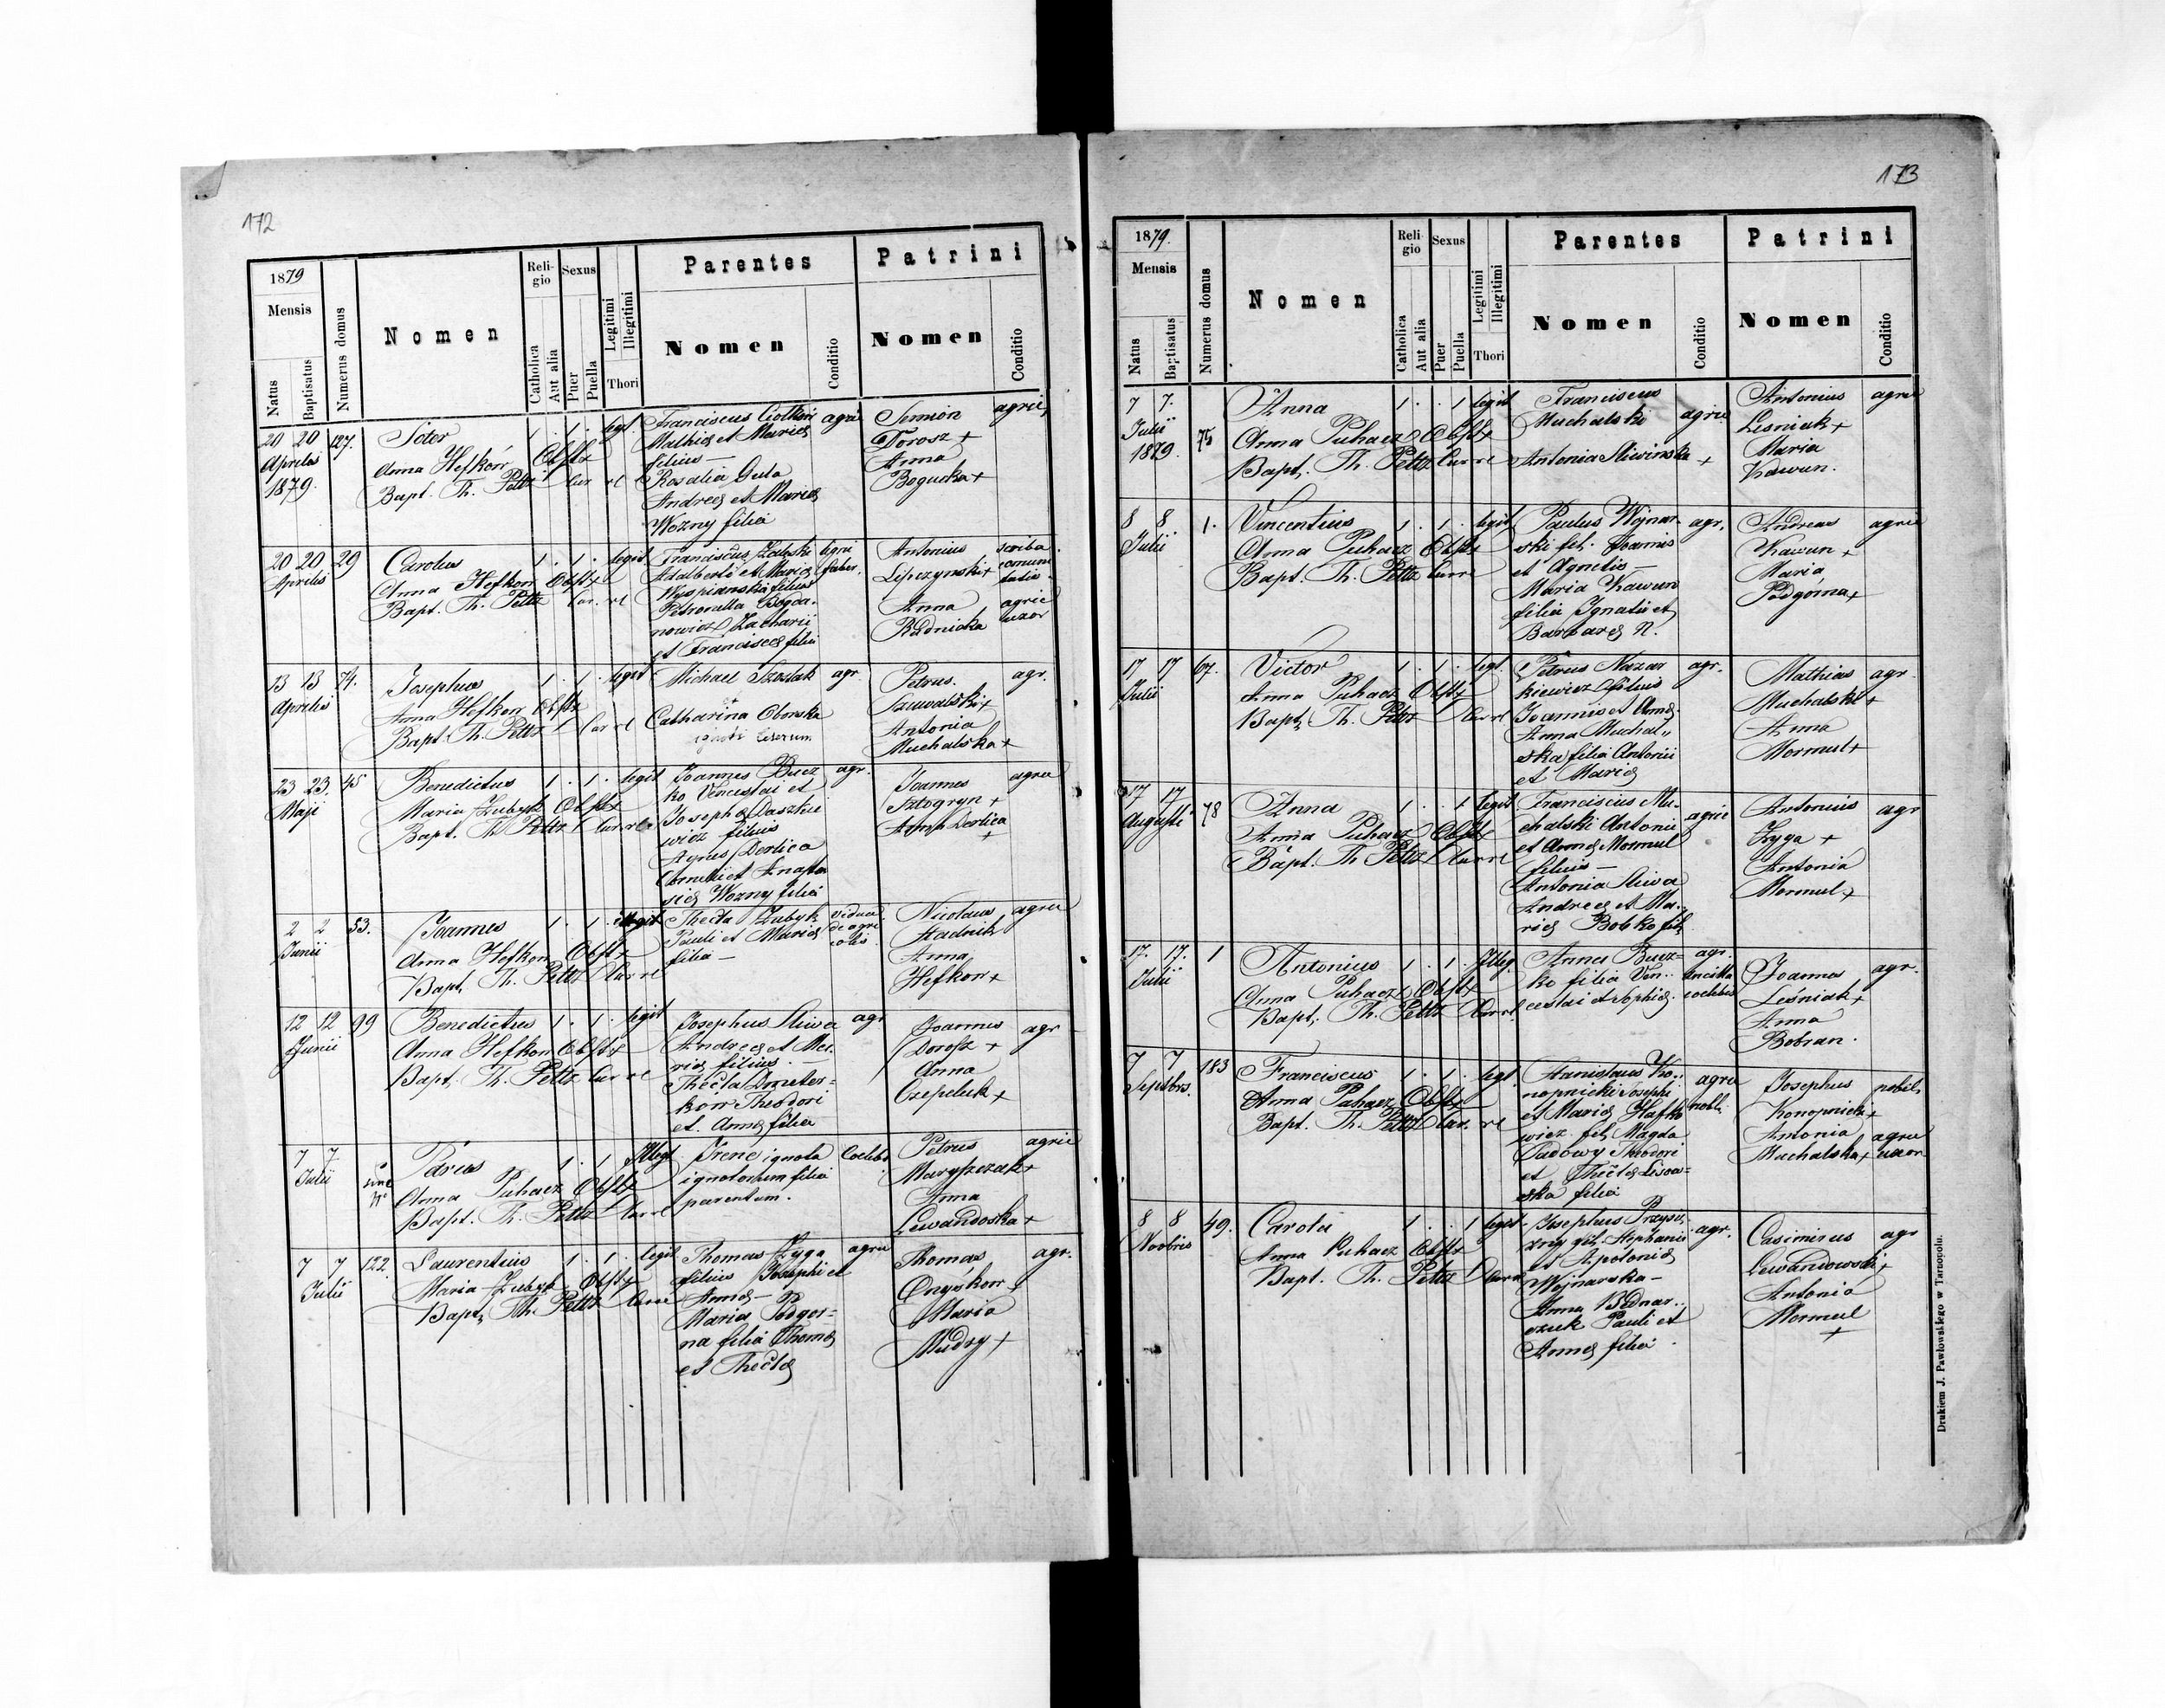 172
1879
Mensis
Natus
Baptisatus
Numerus domus
Nomen
Religio
Catholica
Aut alia
Sexus
Puer
Puella
Legitimi
Illegitimi
Thori
Parentes
Nomen
Conditio
Patrini
Nomen
Conditio
20 20 127.
Aprilis
1879.
Soter
Anna Hefkon Obstx
Bapt. Th. Pettz Cur rl
1 . 1 . legt.
Franciscus
Mathiæ et Mariæ
filius —
Rosalia Gula
Andreæ et Mariæ
Wozny filia
agric
Semion
Dorosz +
Anna
Boguska +
agric,
20 20 29
Aprilis
Carolus
Anna Hefkon Obstx
Bapt. Th. Pettz Cur. rl
1 . 1 . legit
Franciscus Zaleski
Adalberti et Mariæ
Wyspianska filius
Petronella Bogda-
nowicz Zacharii
et Franciscæ filia
ligni
faber.
Antonius
Lipczynski +
Anna
Rudnicka
scriba
comuni
tatis
agric
uxor
13 13 74.
Aprilis
Josephus
Anna Hefkon Obstx
Bapt. Th. Pettz Cur rl
1 . 1 . legit
Michael Szostak
Catharina Obonska
agr.
Petrus
Szuwalski +
Antonia
Muchalska +
agr.
23 23. 45
Maji
Benedictus
Maria Zubyk Obstx
Bapt. Th. Pettz Cur. rl
1 . 1 . legit
Joannes Bucz
ko Venceslai et
Josephæ Daszkie
wicz filius
Agnes Derlica
Cornelii et Anasta
siæ Wozny filia
agr.
Joannes
Sztogryn +
Anna Derlica
+
agric
2 2 53.
Junii
Joannes
Anna Hefkon Obstx
Bapt. Th. Pettz Cur rl
1 . 1 . illegit
Thecla Zubyk
Pauli et Mariæ
filia —
vidua
de agri
colis
Nicolaus
Stadnik
Anna
Hefkon +
agric
12 12 99
Junii
Benedictus
Anna Hefkon Obstx
Bapt. Th. Pettz Cur rl
1 . 1 . legit
Josephus Sliwa
Andreæ et Ma-
riæ filius.
Thecla Dmeter-
kon Theodori
et Annæ filia
agr
Joannes
Dorosz +
Anna
Czepeluk +
agr
7 7 sine
Julii No
Parias
Anna Puhacz Obstx
Bapt. Th. Pettz Cur rl
1 . 1 . Illegt
Irene ignota
ignotorum filia
parentum.
Coelebs
Petrus
Maryszczak +
Anna
Lewandoska +
agric
7 7 122.
Julii
Laurentius
Maria Zubyk Obstx
Bapt. Th. Pettz Curr
1 . 1 . legit.
Thomas Zyga
filius Josephi et
Annæ —
Maria Podgor-
na filia Thomæ
et Theclæ
agric
Thomas
Onyskow
Maria
Mudry +
agr.
173
1879.
Mensis
Natus
Baptisatus
Numerus domus
Nomen
Religio
Catholica
Aut alia
Sexus
Puer
Puella
Legitimi
Illegitimi
Thori
Parentes
Nomen
Conditio
Patrini
Nomen
Conditio
7 7.
Julii 75
1879.
Anna
Anna Puhacz Obstx
Bapt. Th. Pettz Cur rl
1 . . 1 legit
Franciscus
Muchalski
Antonia Sliwinska +
agric
Antonius
Lesniak +
Maria
Kawun.
agric
8 8 1.
Julii
Vincentius
Anna Puhacz Obstx
Bapt. Th. Pettz Curr
1 . 1 . legit
Paulus Wojnar-
ski fil. Joannis
et Agnetis —
Maria Kawun
filia Ignatii et
Barbaræ N.
agr.
Andreas
Kawun +
Maria
Podgórna +
agric
17 17 67.
Julii
Victor
Anna Puhacz Obstx
Bapt. Th. Pettz Cur rl
1 . 1 . legt.
Petrus Nazar
kiewicz filius
Joannis et Annæ
Anna Muchal„
ska filia Antonii
et Mariæ
agr.
Mathias
Muchalski +
Anna
Mormul +
agr.
17 17
Augusti 78
Anna
Anna Puhacz Obstx
Bapt. Th. Pettz Cur rl
1 . . 1 legit
Franciscus Mu-
chalski Antonii
et Annæ Mormul
filius —
Antonia Sliwa
Andreæ et Ma-
riæ Bobko fil.
agric
Antonius
Zyga +
Antonia
Mormul +
agr
17. 17. 1
Julii
Antonius
Anna Puhacz Obstx
Bapt. Th. Pettz Cur rl
1 . 1 . Illeg.
Anna Bucz-
ko filia Ven-
ceslai et Sophiæ.
agr.
ancilla
coelebs
Joannes
Leśniak +
Anna
Bobran.
agr.
7 7 183
Septbris.
Franciscus
Anna Puhacz Obstx
Bapt. Th. Pettz Cur. rl
1 . 1 . legt.
Stanislaus Ko-
nopnicki Josephi
et Mariæ Hafko
wicz fil. Magda
Dudowy Theodori
et Theclæ Lisow-
ska filia
agric
nobl.
Josephus
Konopnicki +
Antonia
Muchalska +
nobil.
agric
uxor
8 8 49.
Novbris
Carola
Anna Puhacz Obstx
Bapt. Th. Pettz Curr
1 . . 1 legit
Josephus Przysi-
zny fil. Stephani
et Apoloniæ
Wojnarska —
Anna Bednar-
czuk Pauli et
Annæ filia
agr.
Casimirus
Lewandowski +
Antonia
Mormul
+
agr
Drukiem J. Pawłowskiego w Tarnopolu.